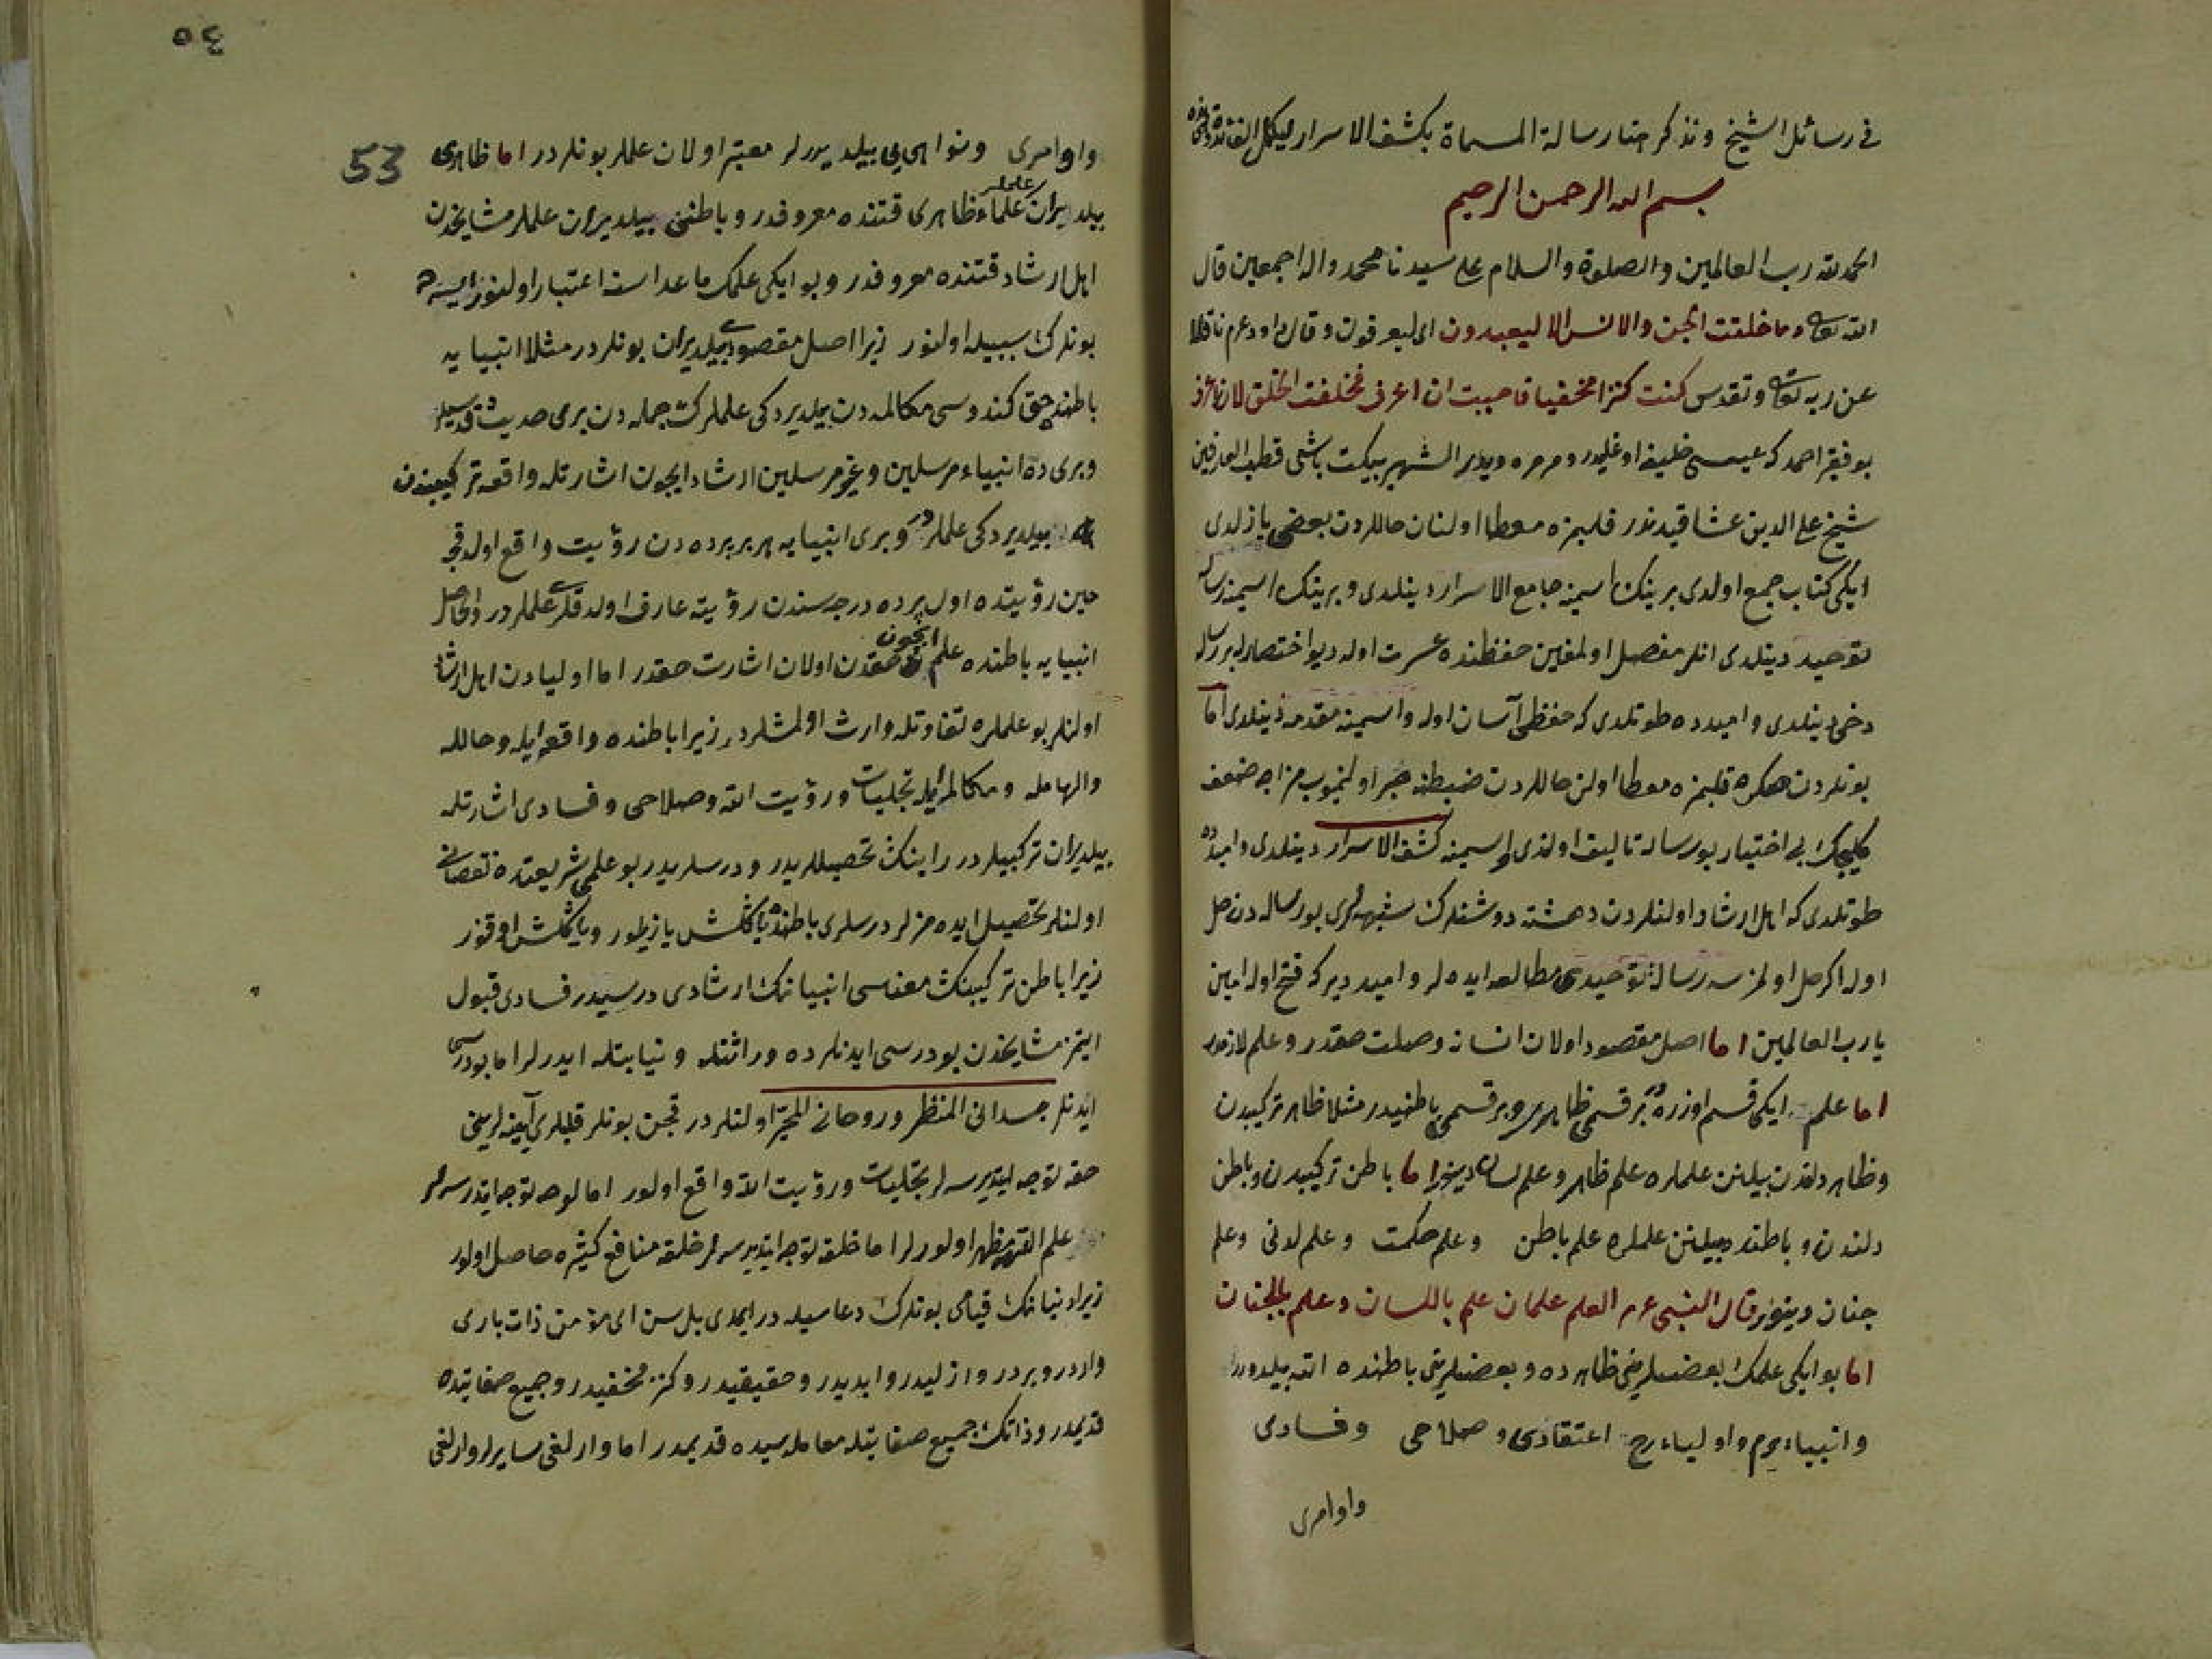 في رسائل الشيخ ونذكر هنا رسالة المسماة بكشف الاسرار ليكمل الفائدة
بسم الله الرحمن الرحيم
الحمد لله رب العالمين والصلوة والسلام على سيدنا محمد واله اجمعين قال
الله تعالى وما خلقت الجن والانس الا ليعبدون اى ليعرفون وقال داود عرم ناقلا
عن ربه تعالى وتقدس كنت كنزا مخفيا فاحببت ان اعرف فخلقت الخلق لان اعرف
بو فقير احمد كه عيسى خليفه اوغليدر و مرمره ويدر الشهير بيكت باشى قطب العارفين
شيخ على الدين عشاقيدندر قلبمزه معطا اولنان حاللردن بعضى يازلدى
ايكى كتاب جمع اولدى برينك اسمينه جامع الاسرار دينلدى و برينك اسمينه رساله
توحيد دينلدى انلر مفصل اولمغين حفظنده عسرت اوله ديو اختصارله بر رساله
دخى دينلدى و اميد ده طوتلدى كه حفظى آسان اوله و اسمينه مقدمه دينلدى اما
بونلردن صكره قلبمزه معطا اولن حاللردن ضبطنه جبر اولنيوب مزاجه ضعف
كليجك بى اختيار بو رساله تاليف اولندى و اسمينه كشف الاسرار دينلدى و اميده
طوتلدى كه اهل ارشاد اولنلردن دهشته دوشنلرك شبهه لرى بو رساله دن حل
اوله اكر حل اولمزسه رساله توحيدى مطالعه ايده لر و اميددير كه فتح اوله امين
يا رب العالمين اما اصل مقصود اولان انسانه وصلت حقدر و علم لازمدر
اما علم ايكى قسم اوزره در بر قسمى ظاهرى و بر قسمى باطنيدر مثلا ظاهر تركيبدن
و ظاهر دلندن بيلنن علملره علم ظاهر و علم لسان دينور اما باطن تركيبدن و باطن
دلندن و باطنده بيلنن علملره علم باطن و علم حكمت و علم لدنى و علم
جنان دينور قال النبى عم العلم علمان علم باللسان و علم بالجنان
اما بو ايكى علمك بعضيلرينى ظاهرده و بعضيلرينى باطنده الله بيلدورر
و انبياء عم و اولياء رح اعتقادى و صلاحى و فسادى
واوامرى
٥٤
53
واوامرى ونواهى يى بيلديررلر معتبر اولان علملر بونلردر اما ظاهرى
بيلديرن علملر علماء ظاهرى قتنده معروفدر و باطنى بيلديرن علملر مشايخدن
اهل ارشاد قتنده معروفدر و بو ايكى علمك ماعداسنه اعتبار اولنور ايسه ده
بونلرك سببيله اولنور زيرا اصل مقصودى بيلديرن بونلردر مثلا انبيايه
باطنده حق كندوسى مكالمه دن بيلديردكى علملرك جمله دن برى حديث قدسيدر
و برى ده انبياء مرسلين و غير مرسلين ارشاد ايچون اشارتله واقعه تركيبندن
بيلديردكى علملردر و برى انبيايه هر بر پرده دن رؤيت واقع اولدقجه
حين رؤيتده اول پرده درجه سندن رؤيته عارف اولدقلرى علملردر والحاصل
انبيايه باطنده علم ايچون حقدن اولان اشارت حقدر اما اوليادن اهل ارشاد
اولنلر بو علملره تفاوتله وارث اولمشلردر زيرا باطنده واقعه ايله و حالله
والهامله و مكالمه ايله تجليات و رؤيت الله وصلاحى و فسادى اشارتله
بيلديرن تركيبلردر راينك تحصيللريدر و درسلريدر بو علمى شريعتده نقصانى
اولنلر تحصيل ايده مزلر درسلرى باطنده ياكلش يازيلور و ياكلش اوقنور
زيرا باطن تركيبنك معناسى انبيانك ارشادى درسيدر فسادى قبول
ايتمز مشايخدن بو درسى ايدنلرده وراثتله و نيابتله ايدرلر اما بو درسى
ايدنلر جسدانى المنظر و روحانى المخبر اولنلردر قچن بونلر قلبلرى آيينه لرينى
حقه توجه ايتديرسه لر تجليات و رؤيت الله واقع اولور اما لوحه توجه ايتدرسه لر
علم اللهه مظهر اولورلر اما خلقه توجه ايتديرسه لر خلقه منافع كثيره حاصل اولور
زيرا دنيانك قيامى بونلرك دعاسيله در ايمدى بل سن اى مؤمن ذات بارى
واردر و بردر و ازليدر و ابديدر و حقيقيدر و كنز مخفيدر و جميع صفاتيده
قديمدر و ذاتك جميع صفاتيله معامله سيده قديمدر اما وارلغى ساير لر وارلغى